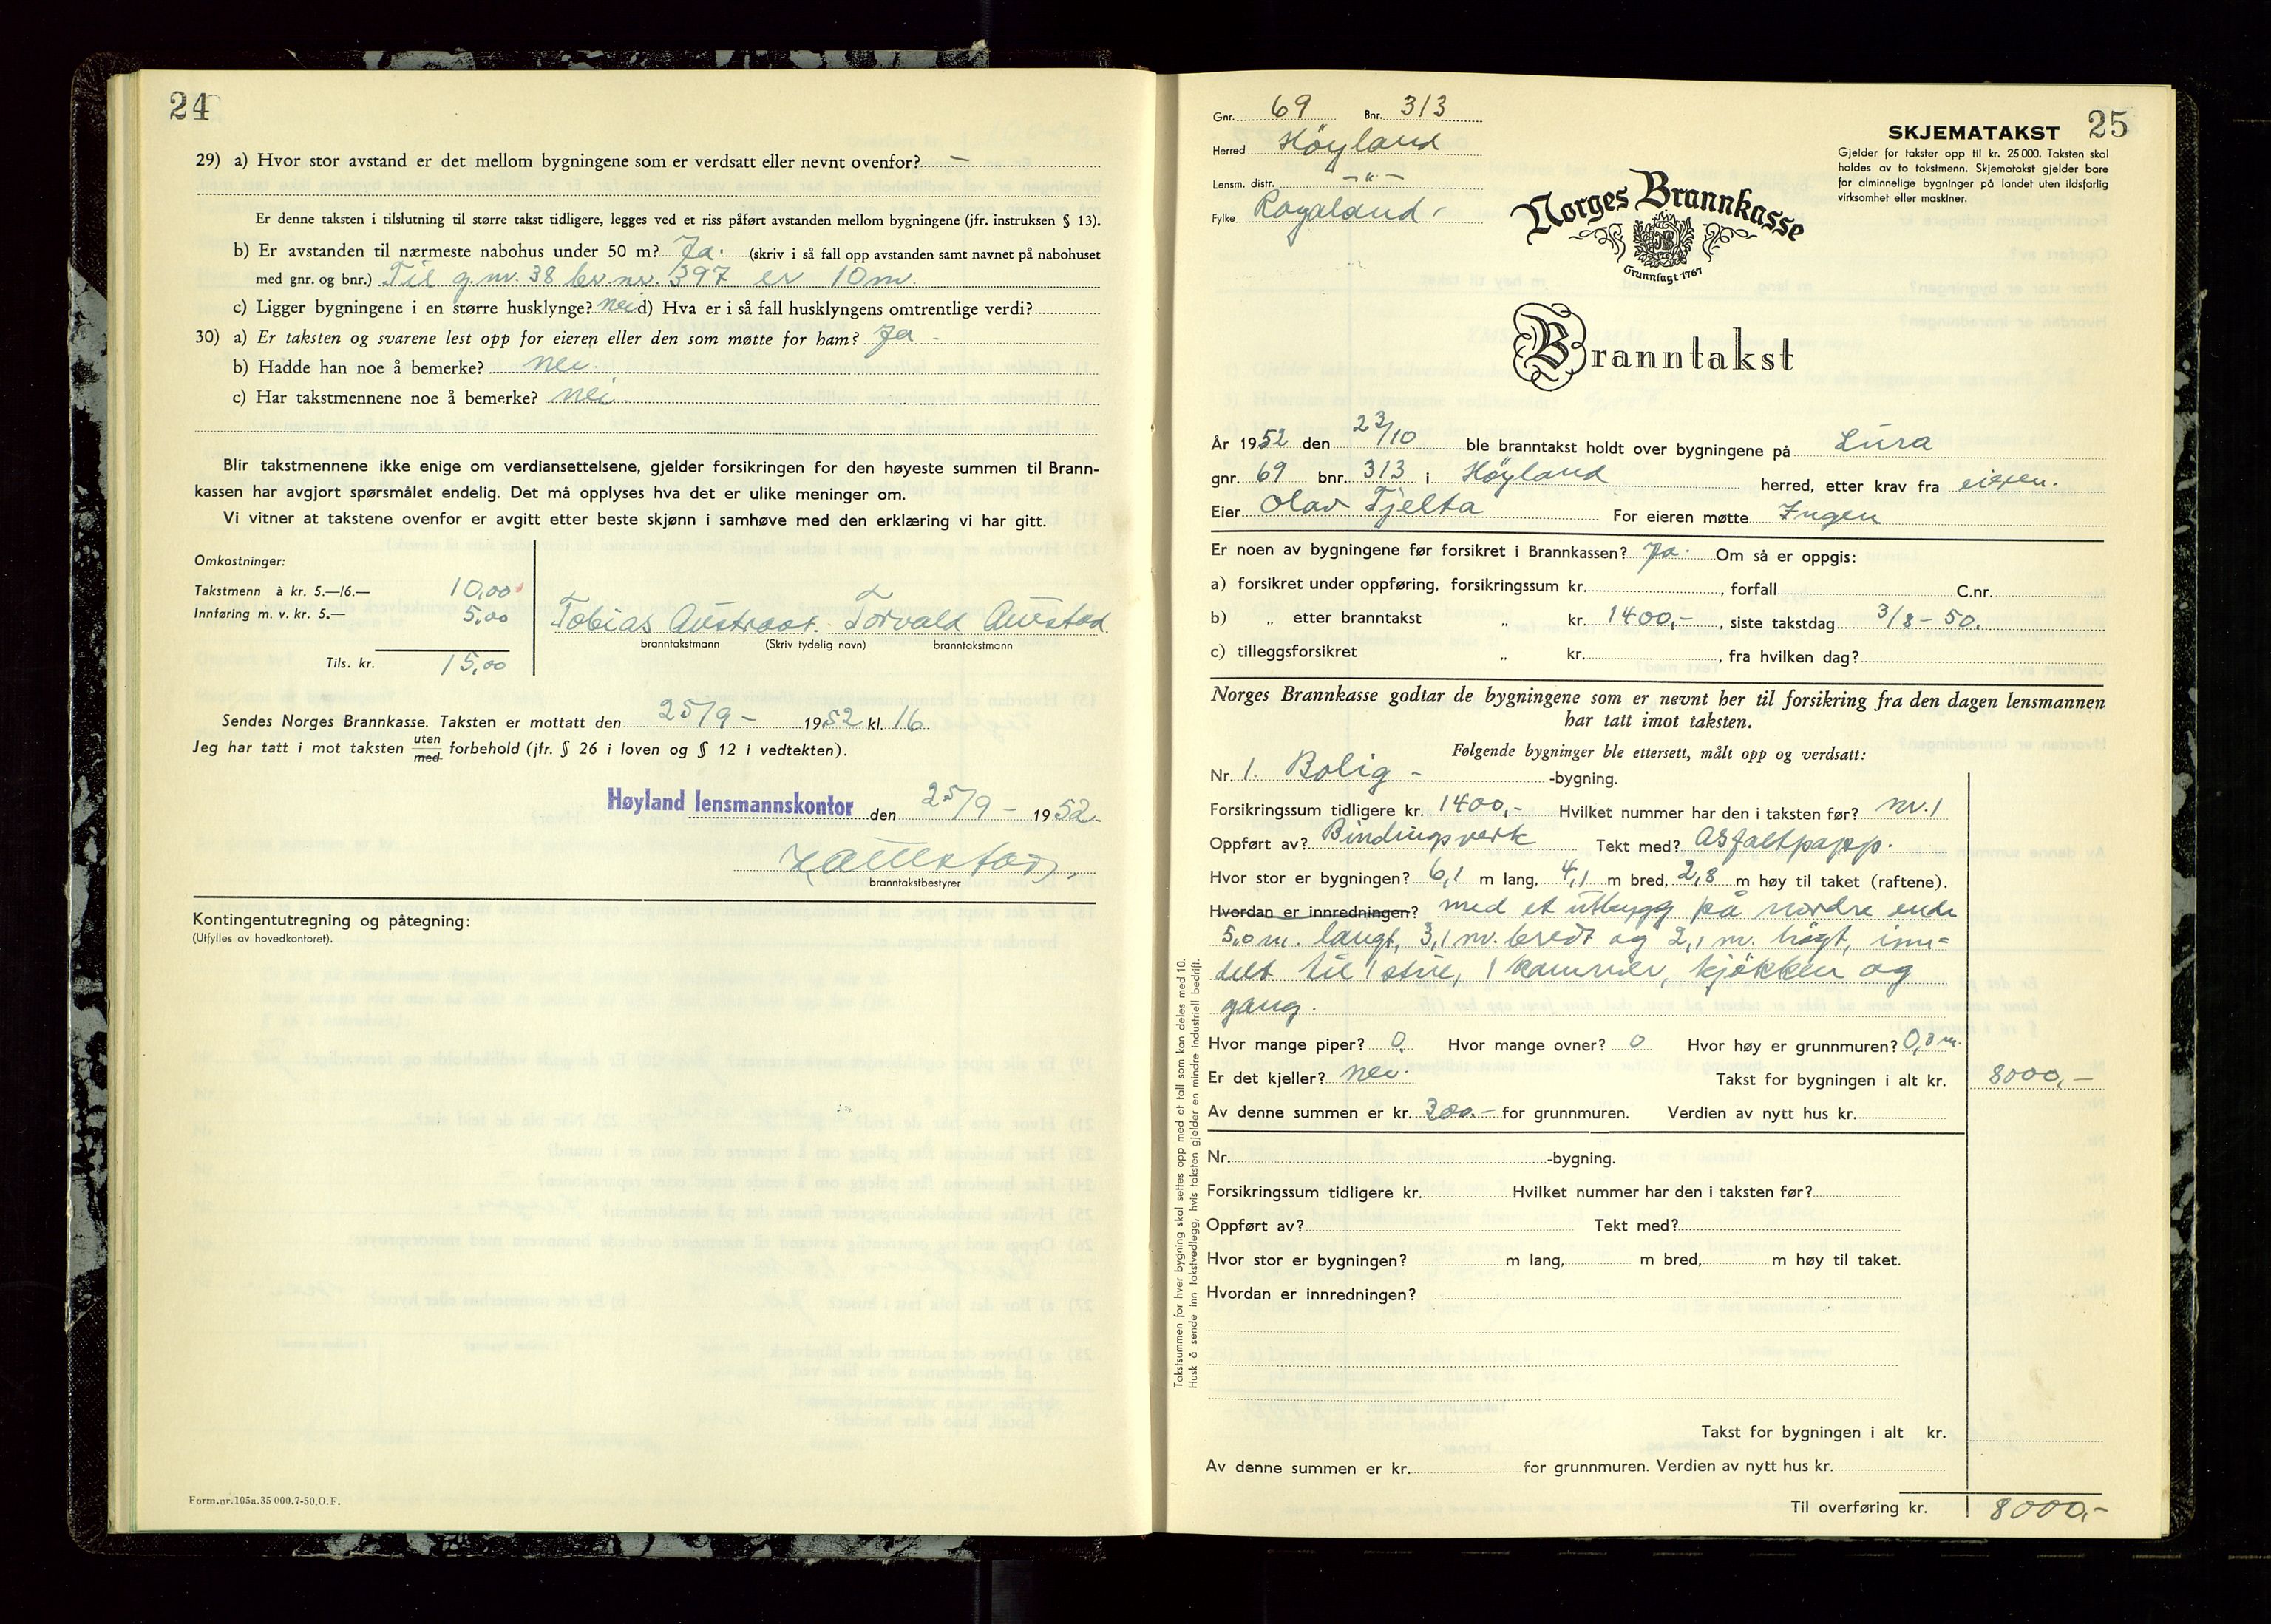 24
29) a) Hvor stor avstand er det mellom bygningene som er verdsatt eller nevnt ovenfor? —
Er denne taksten i tilslutning til større takst tidligere, legges ved et riss påført avstanden mellom bygningene (jfr. instruksen § 13).
b) Er avstanden til nærmeste nabohus under 50 m? Ja. (skriv i så fall opp avstanden samt navnet på nabohuset
med gnr. og bnr.) Til g.nr. 38 br.nr. 397 er 10 m.
c) Ligger bygningene i en større husklynge? nei d) Hva er i så fall husklyngens omtrentlige verdi?
30) a) Er taksten og svarene lest opp for eieren eller den som møtte for ham? Ja -
b) Hadde han noe å bemerke? nei.
c) Har takstmennene noe å bemerke? nei.
Blir takstmennene ikke enige om verdiansettelsene, gjelder forsikringen for den høyeste summen til Brann-
kassen har avgjort spørsmålet endelig. Det må opplyses hva det er ulike meninger om.
Vi vitner at takstene ovenfor er avgitt etter beste skjønn i samhøve med den erklæring vi har gitt.
Omkostninger:
Takstmenn à kr. 5.—/6.— 10,00
Innføring m. v. kr. 5.— 5,00
Tils. kr. 15,00
Tobias Austraat. Torvald Aurstad
branntakstmann (Skriv tydelig navn) branntakstmann
Sendes Norges Brannkasse. Taksten er mottatt den 25/9 - 1952 kl. 16
Jeg har tatt i mot taksten uten/med forbehold (jfr. § 26 i loven og § 12 i vedtekten).
Høyland lensmannskontor den 25/9 - 1952.
branntakstbestyrer
Kontingentutregning og påtegning:
(Utfylles av hovedkontoret).
Form.nr.105a.35 000.7-50.O.F.
Gnr. 69 Bnr. 313
Herred Höyland
Lensm. distr. -"-
Fylke Rogaland -
SKJEMATAKST 25
Gjelder for takster opp til kr. 25 000. Taksten skal
holdes av to takstmenn. Skjematakst gjelder bare
for alminnelige bygninger på landet uten ildsfarlig
virksomhet eller maskiner.
Norges Brannkasse
Grunnlagt 1767
Branntakst
År 1952 den 23/10 ble branntakst holdt over bygningene på Lura
gnr. 69 bnr. 313 i Höyland herred, etter krav fra eieren.
Eier Olav Tjelta For eieren møtte Ingen
Er noen av bygningene før forsikret i Brannkassen? Ja. Om så er oppgis:
a) forsikret under oppføring, forsikringssum kr. , forfall C.nr.
b) „ etter branntakst „ kr. 1400,- , siste takstdag 3/8 - 50.
c) tilleggsforsikret „ kr. , fra hvilken dag?
Norges Brannkasse godtar de bygningene som er nevnt her til forsikring fra den dagen lensmannen
har tatt imot taksten.
Følgende bygninger ble ettersett, målt opp og verdsatt:
Nr. 1. Bolig - -bygning.
Forsikringssum tidligere kr. 1400,- Hvilket nummer har den i taksten før? nr. 1
Oppført av? Bindingsverk Tekt med? Asfaltpapp.
Hvor stor er bygningen? 6,1 m lang, 4,1 m bred, 2,8 m høy til taket (raftene).
Hvordan er innredningen? med et utbygg på nordre ende
5,0 m. langt, 3,1 m. bredt og 2,1 m. högt, inn=
delt til 1 stue, 1 kammer, kjökken og
gang.
Hvor mange piper? 0. Hvor mange ovner? 0 Hvor høy er grunnmuren? 0,3 m.
Er det kjeller? nei. Takst for bygningen i alt kr. 8000,-
Av denne summen er kr. 300.- for grunnmuren. Verdien av nytt hus kr.
Nr. -bygning.
Forsikringssum tidligere kr. Hvilket nummer har den i taksten før?
Oppført av? Tekt med?
Hvor stor er bygningen? m lang, m bred, m høy til taket.
Hvordan er innredningen?
Takst for bygningen i alt kr.
Av denne summen er kr. for grunnmuren. Verdien av nytt hus kr.
Til overføring kr. 8000,-
Takstsummen for hver bygning skal settes opp med et tall som kan deles med 10.
Husk å sende inn takstvedlegg, hvis taksten gjelder en mindre industriell bedrift.